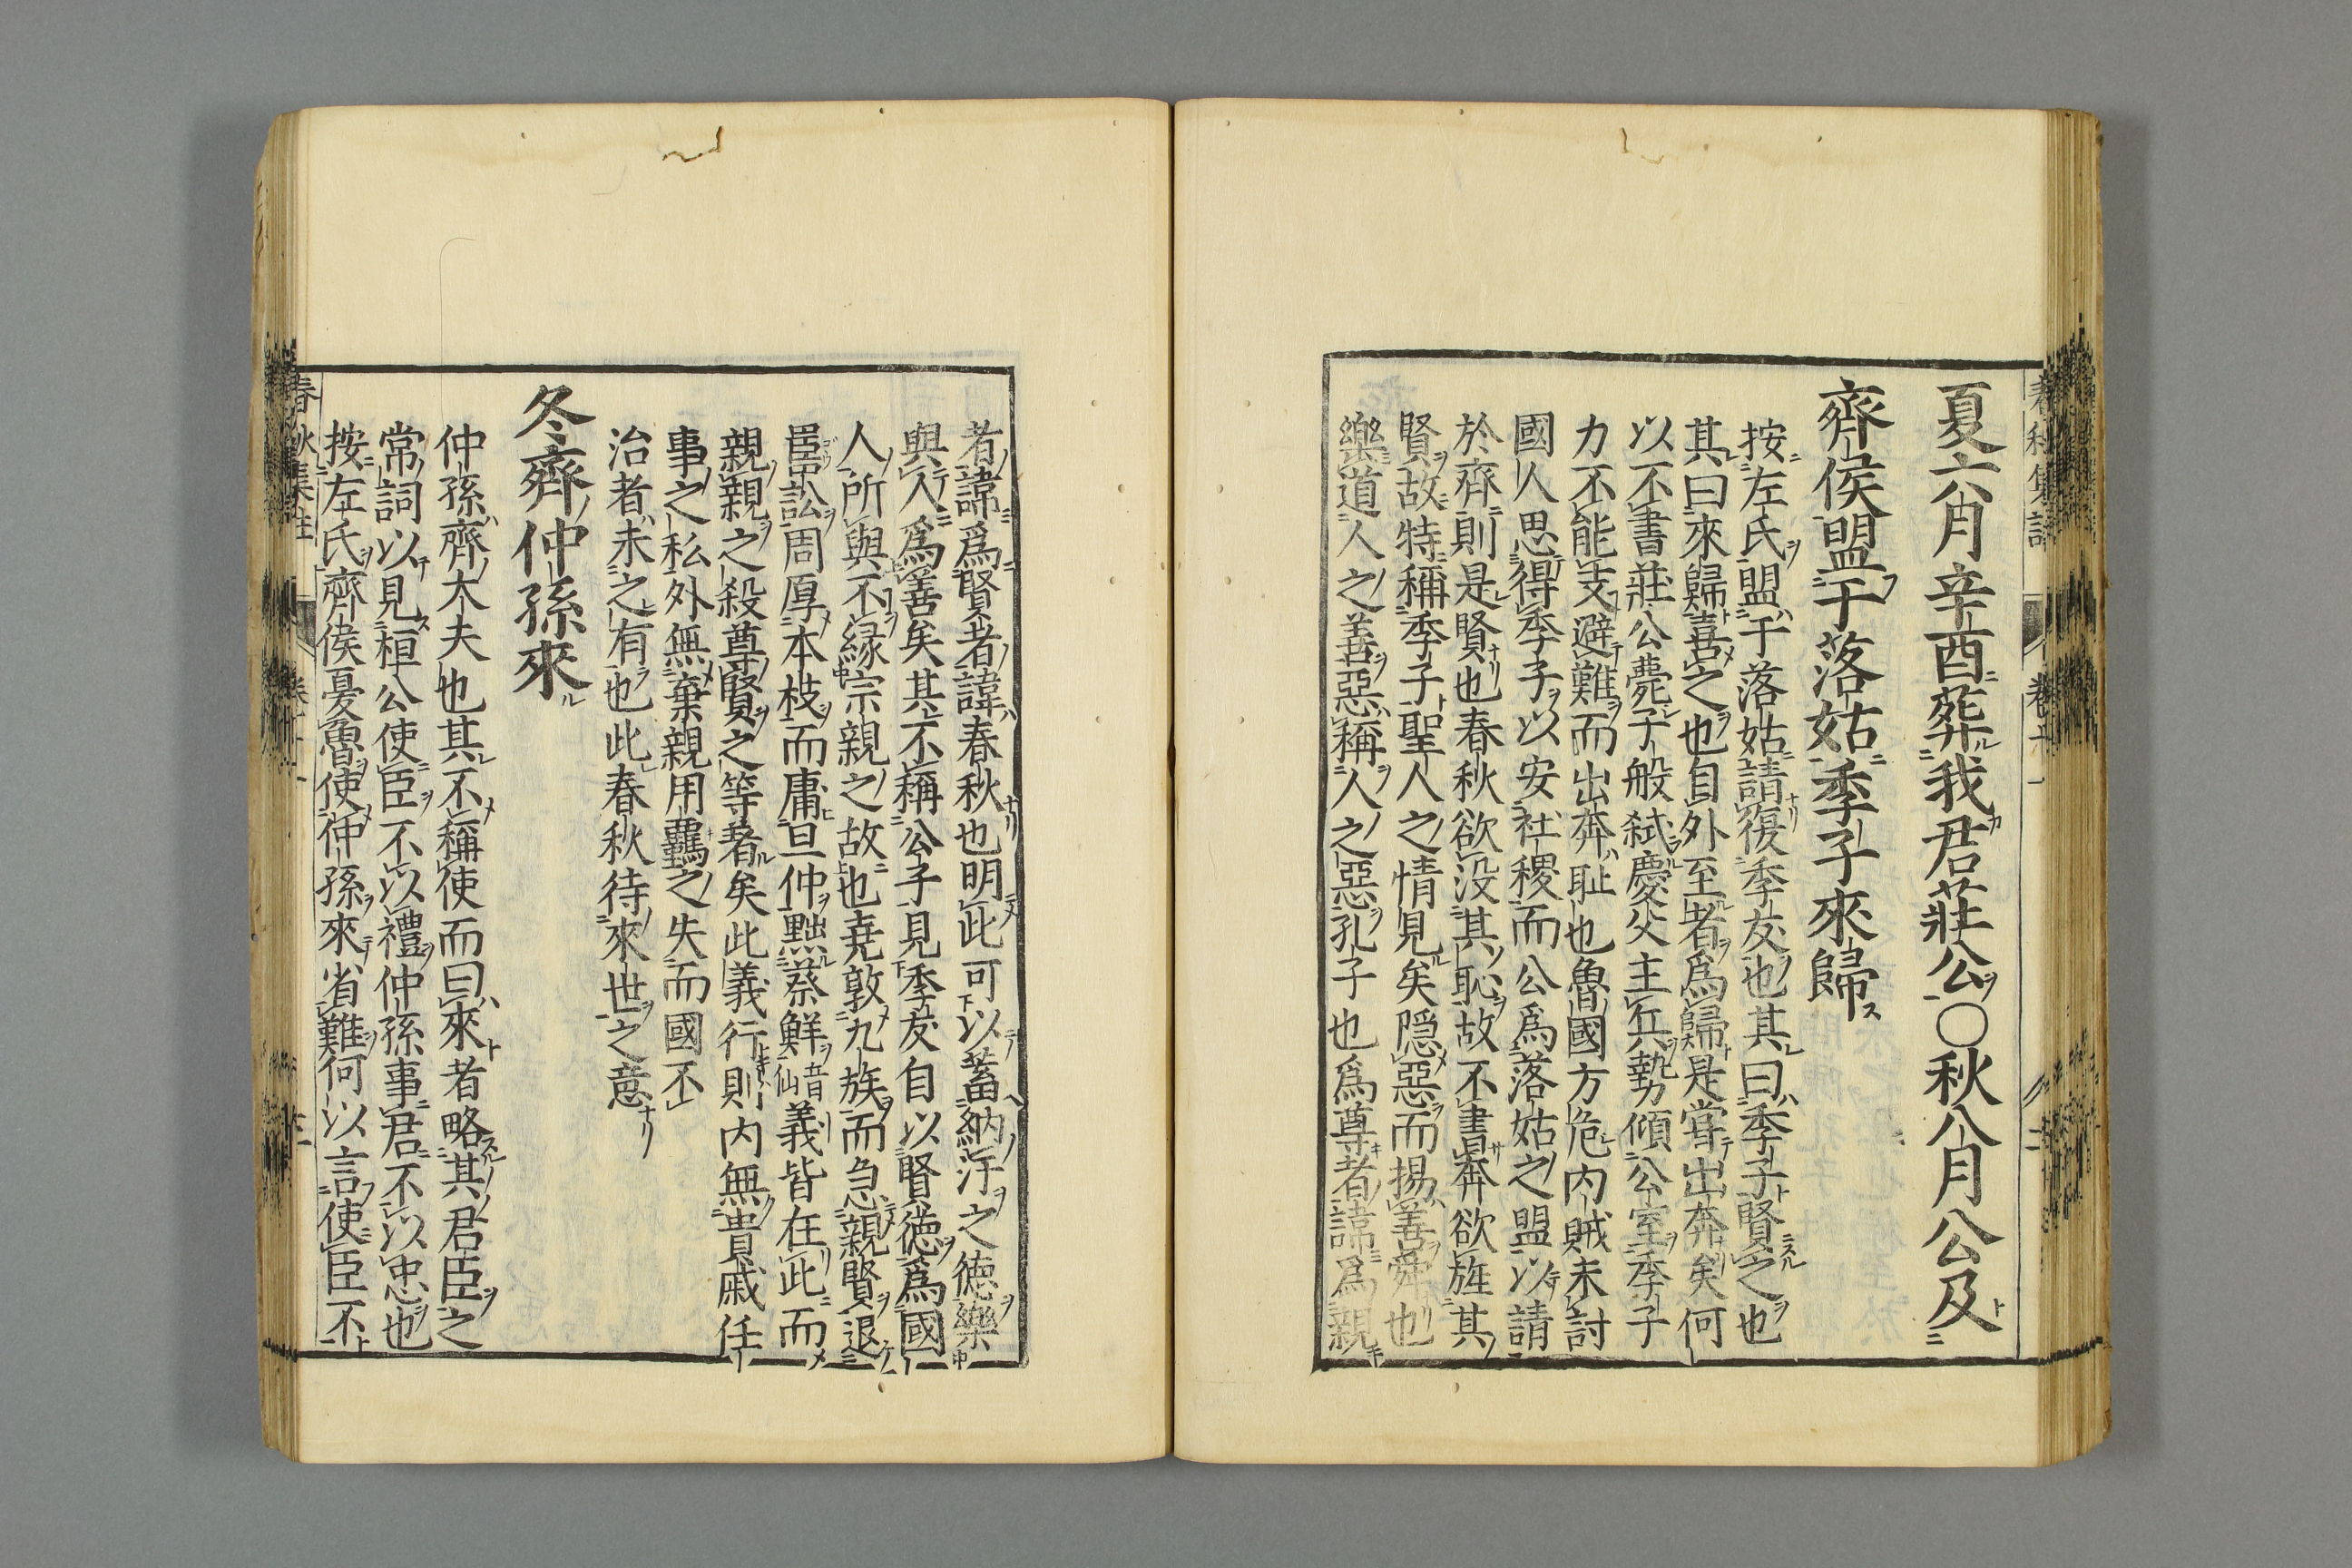 夏六月辛酉葬我君莊公〇秋八月公及
齊侯盟于落姑季子來歸
按左氏盟于落姑請復季友也其曰季子賢之也
其曰來歸喜之也自外至者爲歸是嘗出奔矣何
以不書莊公薨子般弑慶父主兵勢傾公室季子
力不能支避難而出奔恥也魯國方危内賊未討
國人思得季子以安社稷而公爲落姑之盟以請
於齊則是賢也春秋欲没其恥故不書奔欲旌其
賢故特稱季子聖人之情見矣隠惡而揚善舜也
樂道人之善惡稱人之惡孔子也爲尊者諱爲親
者諱爲賢者諱春秋也明此可以蓄納汙之德樂
與人爲善矣其不稱公子見季友自以賢德爲國
人所與不緣宗親之故也堯敦九族而急親賢退
嚚訟周厚本枝而庸旦仲黜蔡鮮音仙義皆在此而
親親之殺尊賢之等著矣此義行則内無貴戚任
事之私外無棄親用羈之失而國不
治者未之有也此春秋待來世之意
冬齊仲孫來
仲孫齊大夫也其不稱使而曰來者略其君臣之
常詞以見桓公使臣不以禮仲孫事君不以忠也
按左氏齊侯憂魯使仲孫來省難何以言使臣不